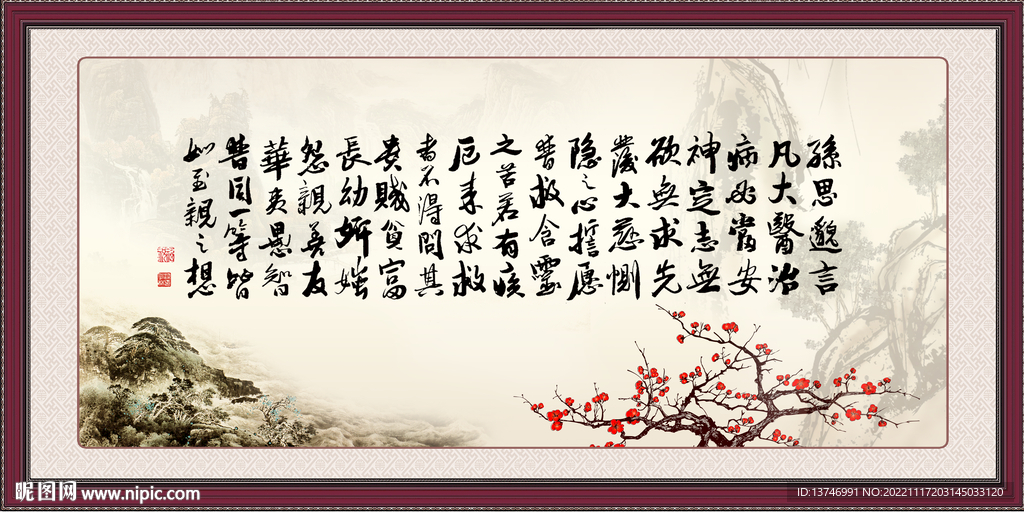 孫思邈言
凡大醫治
病必當安
神定志無
欲無求先
發大慈惻
隐之心誓愿
普救含靈
之苦若有疾
厄来求救
者不得問其
贵賤貧富
長幼妍媸
怨親善友
華夷愚智
普同一等皆
如至親之想
昵图网 www.nipic.com
ID:13746991 NO:20221117203145033120